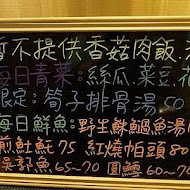 暫不提供香菇肉飯.
每日青菜:絲瓜.菜豆
限定:筍子排骨湯50
每日鮮魚:野生鮢鰨魚湯
煎魠魠75 紅燒帕頭80
吳郭魚65~70 圓鱈60~7